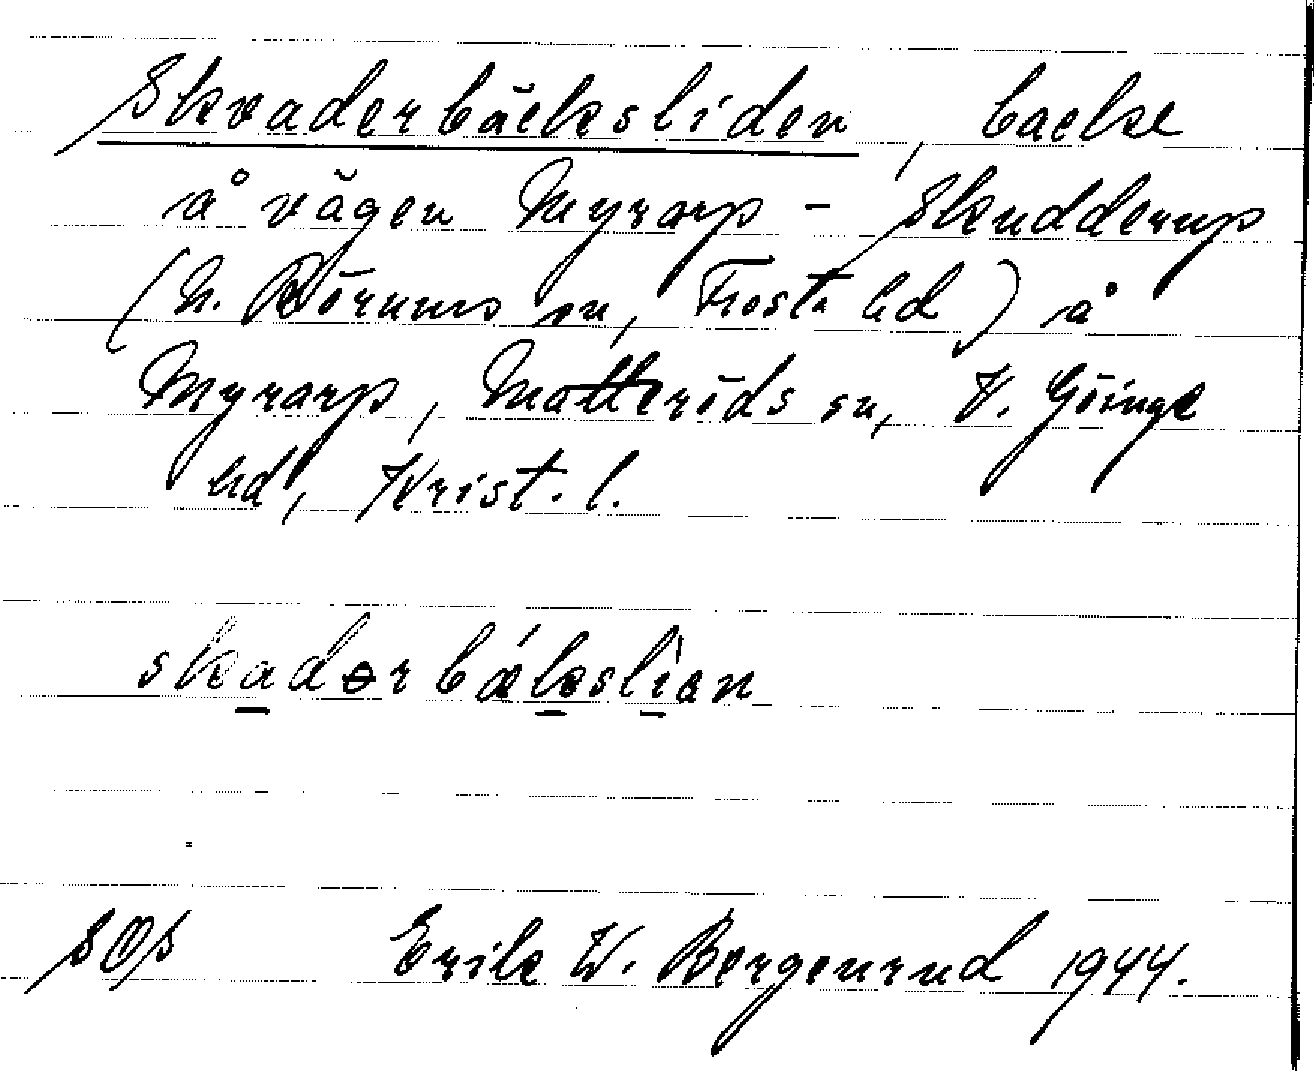 Skvaderbäcksliden, backe
å vägen Myrarp - Skudderup
(N. Rörums sn, Frosta hd) å
Myrarp, Matteröds sn, V. Göinge
hd, Krist. l.
skadərbǽkslìən
SOS Erik W. Bergenrud 1944.